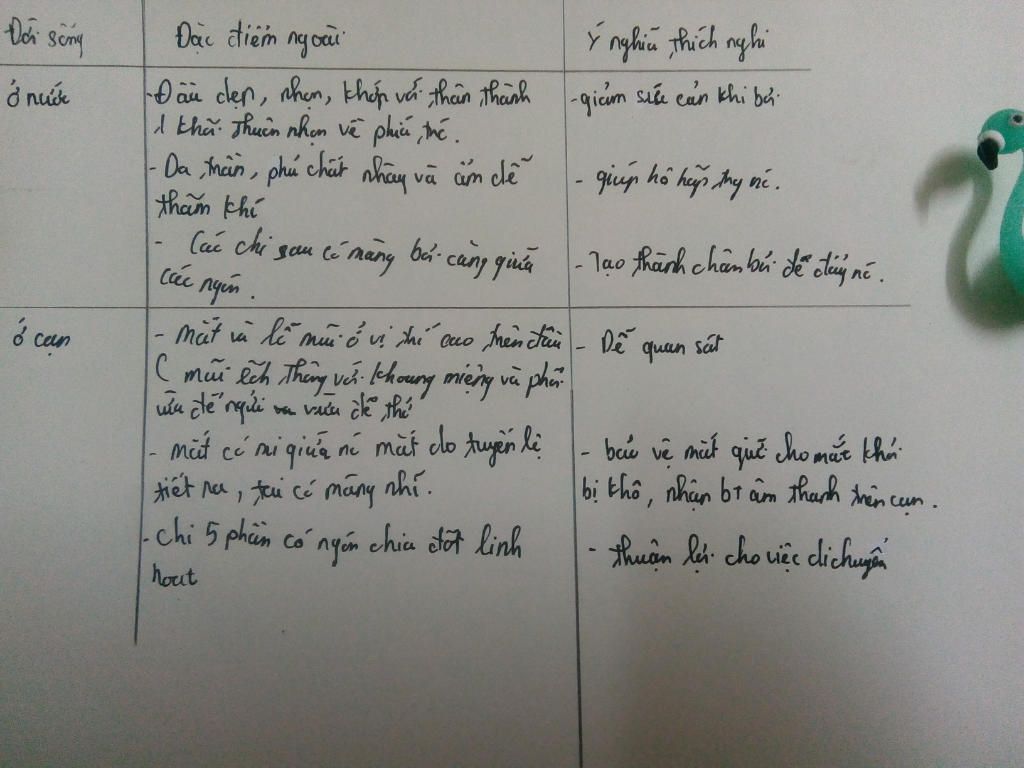 Đời sống Đặc điểm ngoài Ý nghĩa thích nghi
ở nước - Đầu dẹp, nhọn, khớp với thân thành - giảm sức cản khi bơi
1 khối thuôn nhọn về phía trc.
- Da trần, phủ chất nhầy và ẩm dễ - giúp hô hấp trg nc.
thấm khí
- Các chi sau có màng bơi căng giữa - Tạo thành chân bơi để đẩy nc.
các ngón.
ở cạn - mắt và lỗ mũi ở vị trí cao trên đầu - Dễ quan sát
( mũi ếch thông với khoang miệng và phổi
vừa để ngửi vừa để thở
- mắt có mi giữ nc mắt do tuyến lệ - bảo vệ mắt giữ cho mắt khỏi
tiết ra, tai có màng nhĩ. bị khô, nhận bt âm thanh trên cạn.
- Chi 5 phần có ngón chia đốt linh - thuận lợi cho việc di chuyển
hoạt